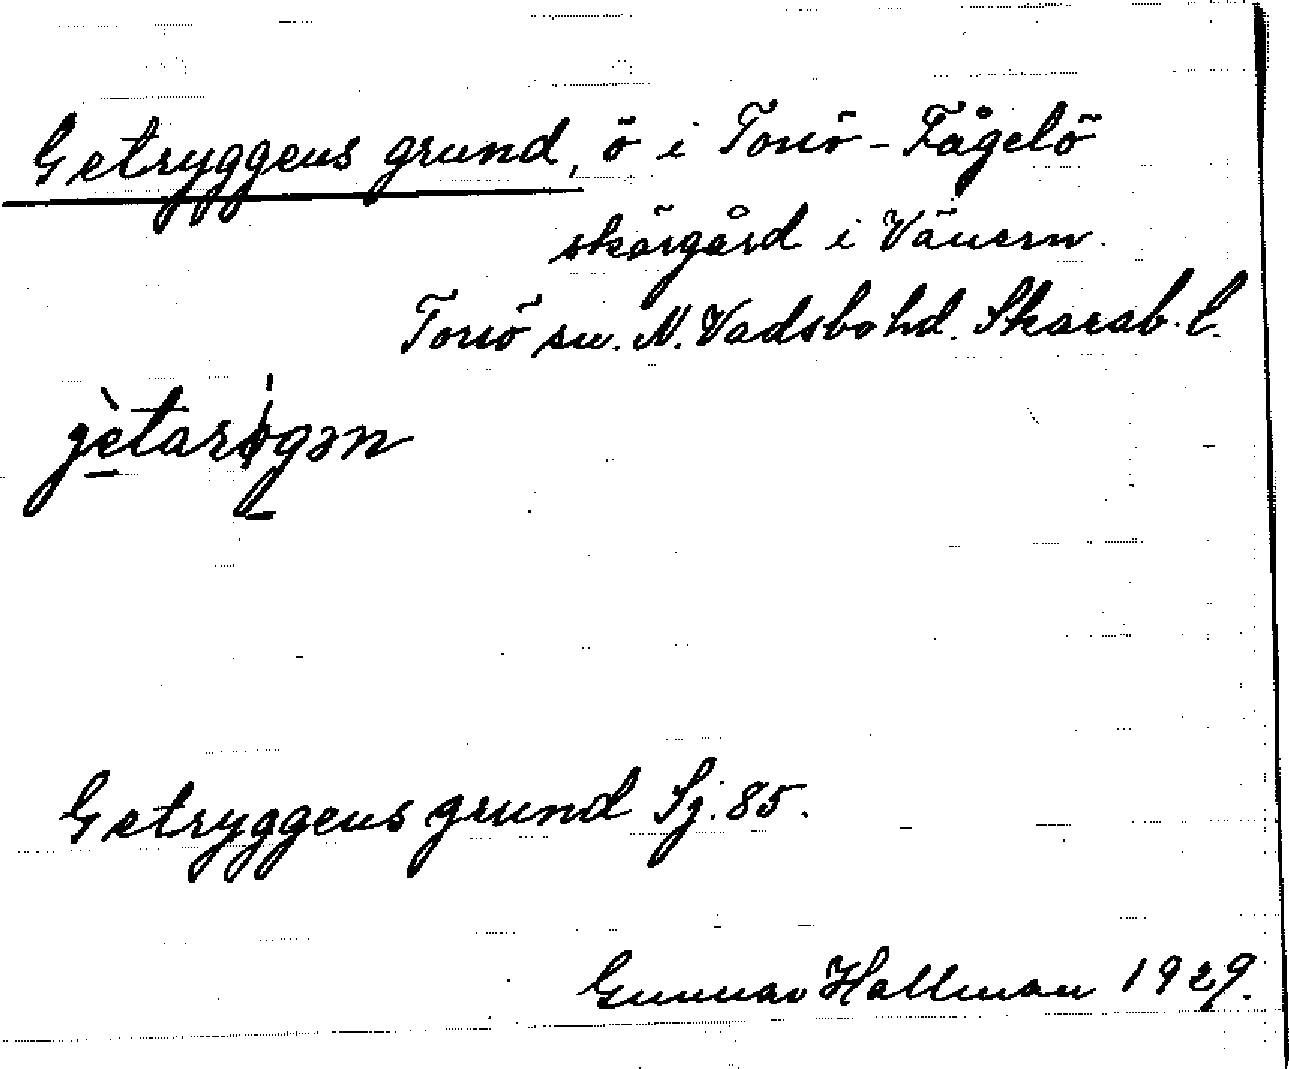 Getryggens grund, ö i Torsö-Fågelö
skärgård i Vänern.
Torsö sn. N. Vadsbo hd. Skarab. l.
Getryggens grund Sj. 85.
Gunnar Hallman 1929.